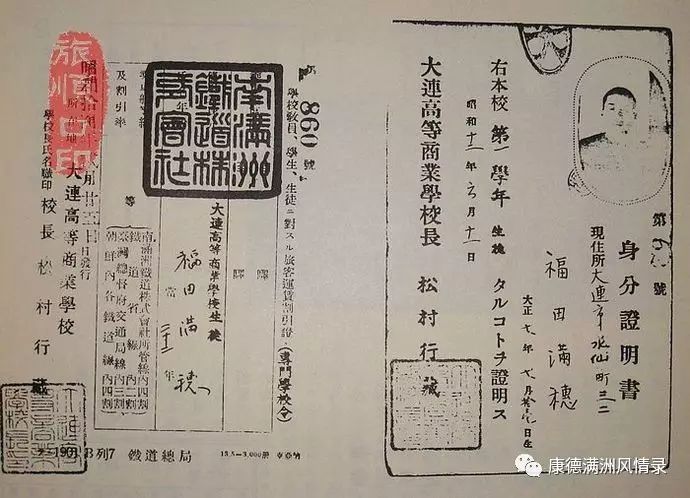 身分證明書
現住所大連市水仙町三二
福田満穗
大正七年七月
日生
右本校第一學年生徒タルコトヲ證明ス
昭和十二年六月十一日
大連高等商業學校長 松村行藏
860號
學校教員、學生、生徒ニ對スル旅客運賃割引證(專門學校令)
南満洲鐵道株式會社
大連高等商業學校生徒
福田満穗
當二十年
驛
驛
南満洲鐵道株式會社所管線內四割
鐵道省線內二割
臺灣總督府交通局線內三割
朝鮮內各鐵道線內四割
等
及割引率
日發行
所在地
大連高等商業學校
學校長氏名職印 校長 松村行藏
B列7 鐵道總局 13.5-3,000冊
康德满洲风情录